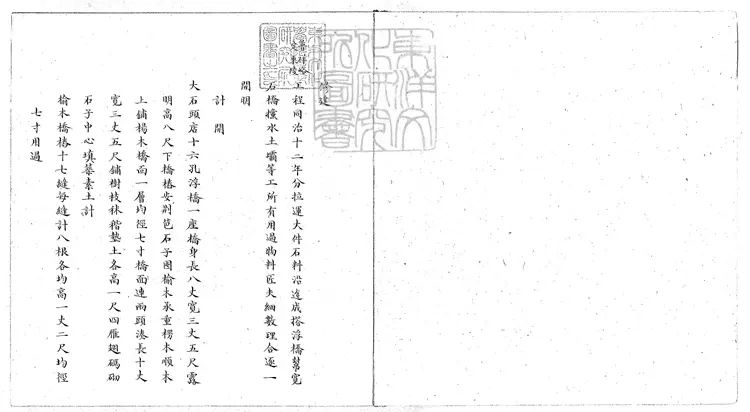 東洋文化研究所圖書
修建
普祥峪
定東陵
工程同治十二年分拉運大件石料沿途成搭浮橋幫寬
石橋擋水土壩等工所有用過物料匠夫細數理合逐一
開明
計開
大石頭店十六孔浮橋一座橋身長八丈寬三丈五尺露
明高八尺下橋樁安荆笆石子囤榆木承重楞木順木
上鋪楊木橋面一層均徑七寸橋面連兩頭湊長十丈
寬三丈五尺鋪樹枝秫稭墊土各高一尺四雁翅碼砌
石子中心填築素土計
榆木橋樁十七縫每縫計八根各均高一丈二尺均徑
七寸用過